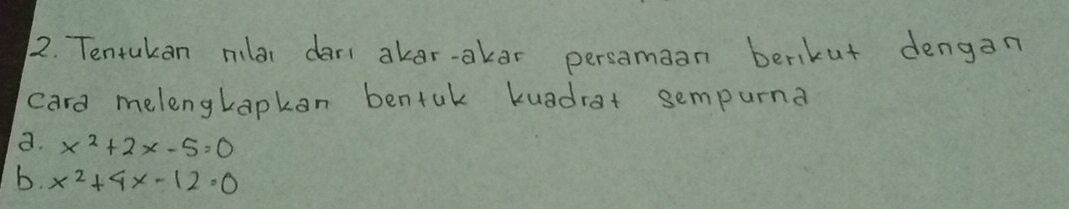 2. Tentukan nilai dari akar-akar persamaan berikut dengan
cara melengkapkan bentuk kuadrat sempurna
a. x² + 2x - 5 = 0
b. x² + 4x - 12 = 0